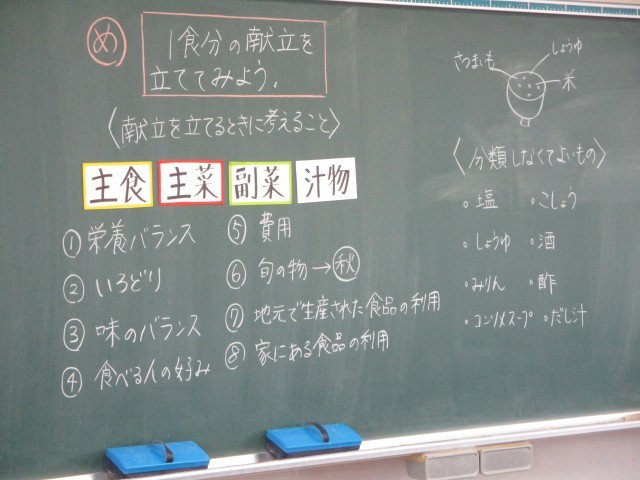 め
1食分の献立を
立ててみよう。
〈献立を立てるときに考えること〉
主食 主菜 副菜 汁物
① 栄養バランス
② いろどり
③ 味のバランス
④ 食べる人の好み
⑤ 費用
⑥ 旬の物→秋
⑦ 地元で生産された食品の利用
⑧ 家にある食品の利用
さつまいも
しょうゆ
米
〈分類しなくてよいもの〉
。塩 。こしょう
。しょうゆ 。酒
。みりん 。酢
。コンソメスープ 。だし汁